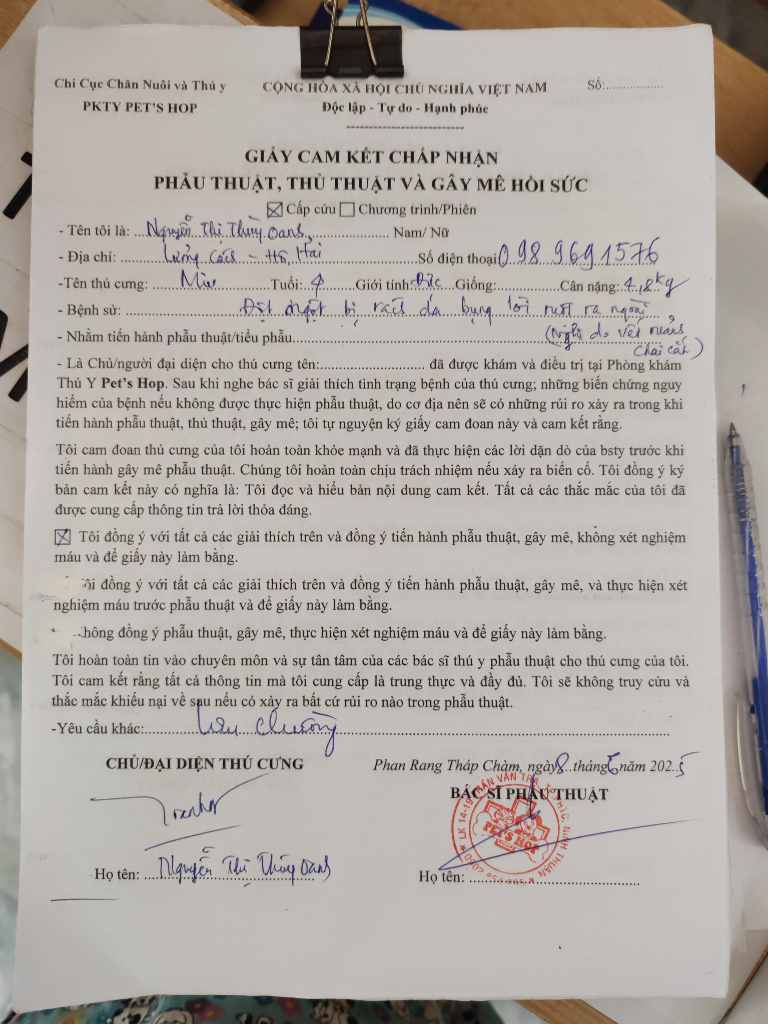 Chi Cục Chăn Nuôi và Thú y CỘNG HÒA XÃ HỘI CHỦ NGHĨA VIỆT NAM Số:.................
PKTY PET'S HOP Độc lập - Tự do - Hạnh phúc
GIẤY CAM KẾT CHẤP NHẬN
PHẪU THUẬT, THỦ THUẬT VÀ GÂY MÊ HỒI SỨC
☒ Cấp cứu ☐ Chương trình/Phiên
- Tên tôi là: Nguyễn Thị Thùy Oanh Nam/ Nữ
- Địa chỉ: Lương Cách - Hộ Hải Số điện thoại 098 9691576
-Tên thú cưng: Miu Tuổi: 4 Giới tính: Đực Giống: Cân nặng: 4,8kg
- Bệnh sử: Đột ngột bị rách da bụng lòi ruột ra ngoài
- Nhằm tiến hành phẫu thuật/tiểu phẫu (Nghi do vết
- Là Chủ/người đại diện cho thú cưng tên:........................ đã được khám và điều trị tại Phòng khám
Thú Y Pet's Hop. Sau khi nghe bác sĩ giải thích tình trạng bệnh của thú cưng; những biến chứng nguy
hiểm của bệnh nếu không được thực hiện phẫu thuật, do cơ địa nên sẽ có những rủi ro xảy ra trong khi
tiến hành phẫu thuật, thủ thuật, gây mê; tôi tự nguyện ký giấy cam đoan này và cam kết rằng.
Tôi cam đoan thú cưng của tôi hoàn toàn khỏe mạnh và đã thực hiện các lời dặn dò của bsty trước khi
tiến hành gây mê phẫu thuật. Chúng tôi hoàn toàn chịu trách nhiệm nếu xáy ra biến cố. Tôi đồng ý ký
bản cam kết này có nghĩa là: Tôi đọc và hiểu bản nội dung cam kết. Tất cả các thắc mắc của tôi đã
được cung cấp thông tin trả lời thỏa đáng.
☒ Tôi đồng ý với tất cả các giải thích trên và đồng ý tiến hành phẫu thuật, gây mê, không xét nghiệm
máu và để giấy này làm bằng.
ôi đồng ý với tất cả các giải thích trên và đồng ý tiến hành phẫu thuật, gây mê, và thực hiện xét
nghiệm máu trước phẫu thuật và để giấy này làm bằng.
hông đồng ý phẫu thuật, gây mê, thực hiện xét nghiệm máu và để giấy này làm bằng.
Tôi hoàn toàn tin vào chuyên môn và sự tân tâm của các bác sĩ thú y phẫu thuật cho thú cưng của tôi.
Tôi cam kết rằng tất cả thông tin mà tôi cung cấp là trung thực và đầy đủ. Tôi sẽ không truy cứu và
thắc mắc khiếu nại về sau nếu có xảy ra bất cứ rủi ro nào trong phẫu thuật.
-Yêu cầu khác: lưu chuồng
CHỦ/ĐẠI DIỆN THÚ CƯNG Phan Rang Tháp Chàm, ngày 8 tháng 6 năm 2025
BÁC SĨ PHẪU THUẬT
PET'S HOP
Họ tên: Nguyễn Thị Thùy Oanh Họ tên: